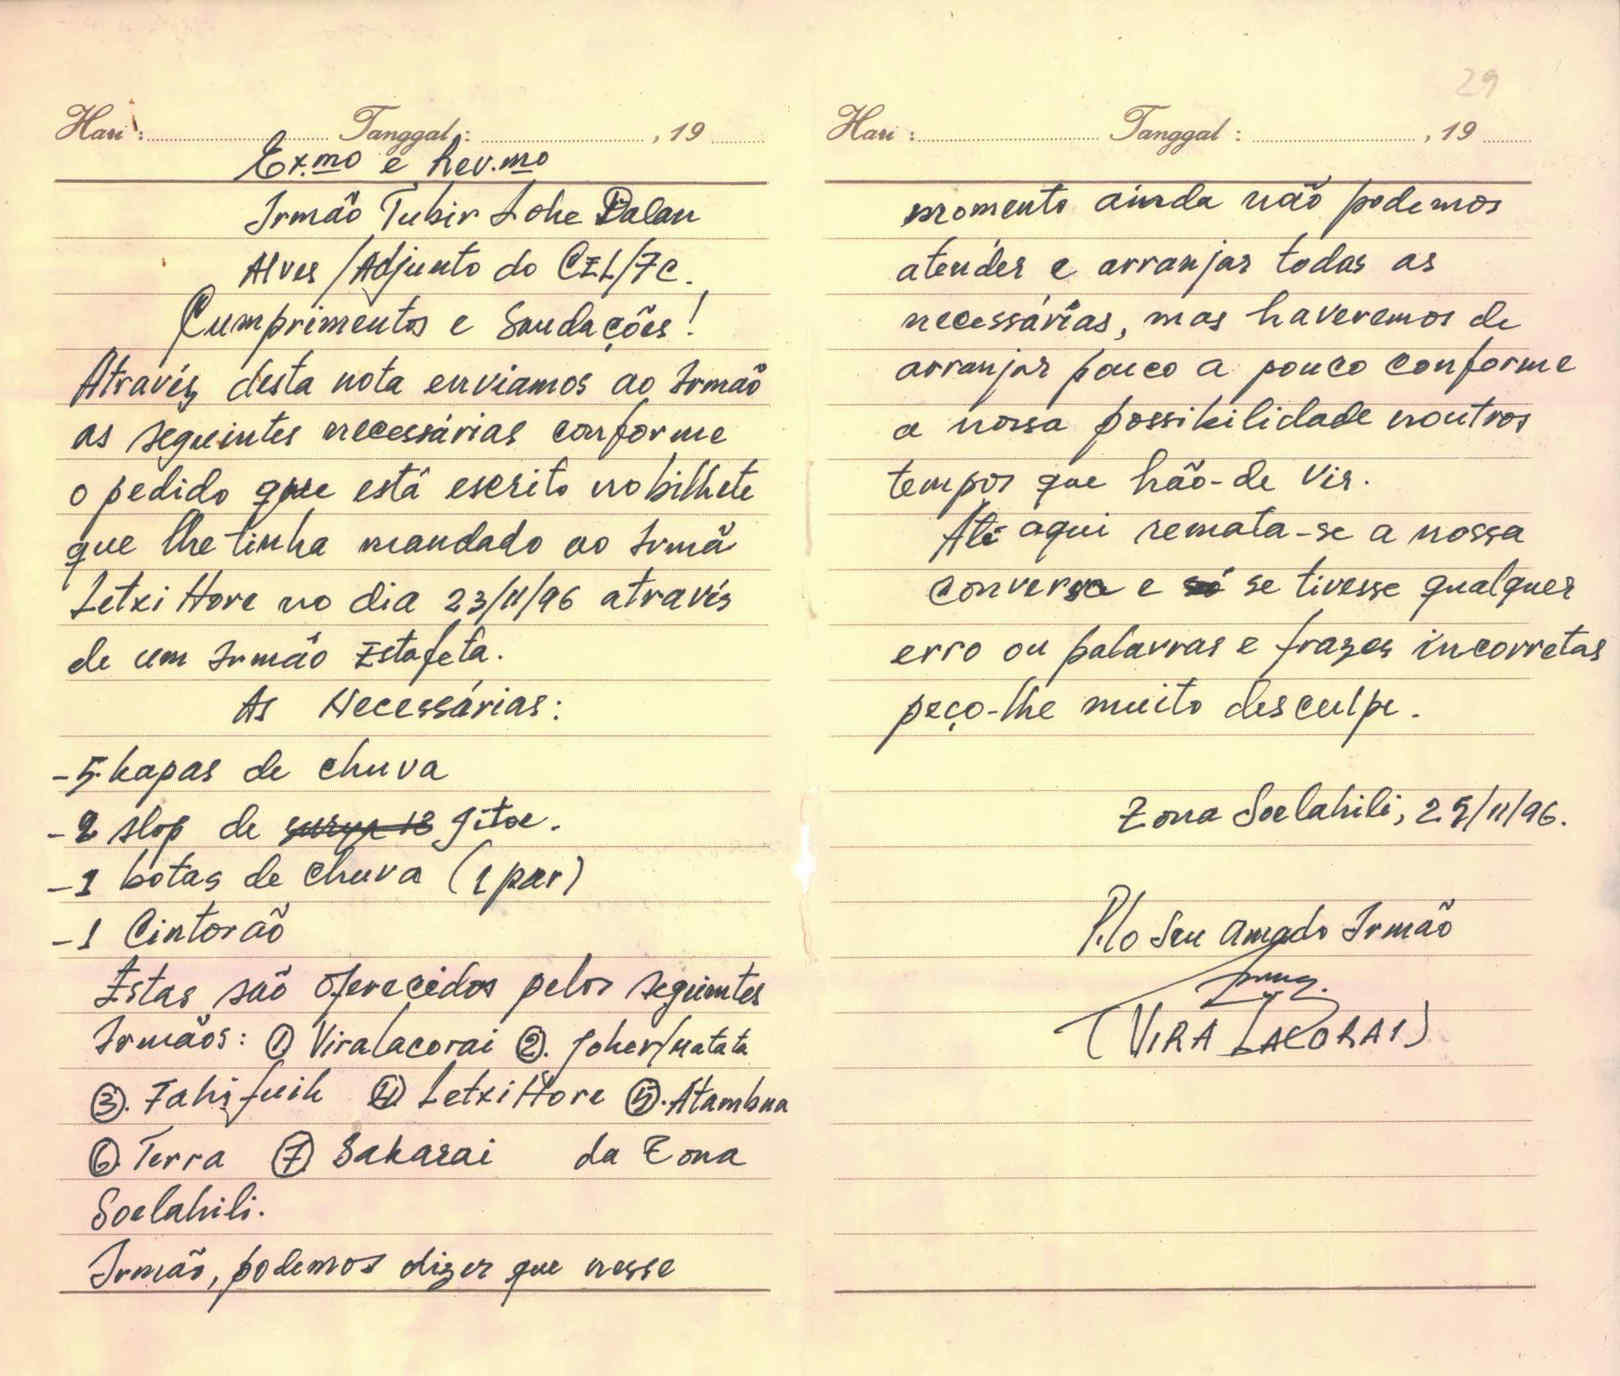 29
Hari : Tanggal : , 19
Ex.mo e Rev.mo
Irmão Tubir Lohe Dalan
Alves /Adjunto do CEL/7C.
Cumprimentos e Saudações!
Através desta nota enviamos ao Irmão
as seguintes necessárias conforme
o pedido que está escrito no bilhete
que lhe tinha mandado ao Irmã
Letxi Hore no dia 23/11/96 através
de um Irmão Estafeta.
As Necessárias:
- 5 kapas de chuva
- 2 slop de Gitoe.
- 1 botas de chuva (1 par)
- 1 Cintorão
Estas são oferecidos pelos seguintes
Irmãos: ① Viralacorai ②. Joher/Matata
③. Fahifuik ④ Letxi Hore ⑤. Atambua
⑥. Terra ⑦ Sakarai da Zona
Soelahili.
Irmão, podemos dizer que nesse
Hari : Tanggal : , 19
momento ainda não podemos
atender e arranjar todas as
necessárias, mas haveremos de
arranjar pouco a pouco conforme
a nossa possibilidade noutros
tempos que hão-de vir.
Até aqui remata-se a nossa
conversa e se tivesse qualquer
erro ou palavras e frazes incorretas
peço-lhe muito desculpe.
Zona Soelahili, 25/11/96.
P'lo Seu Amado Irmão
(VIRA LACORAI)